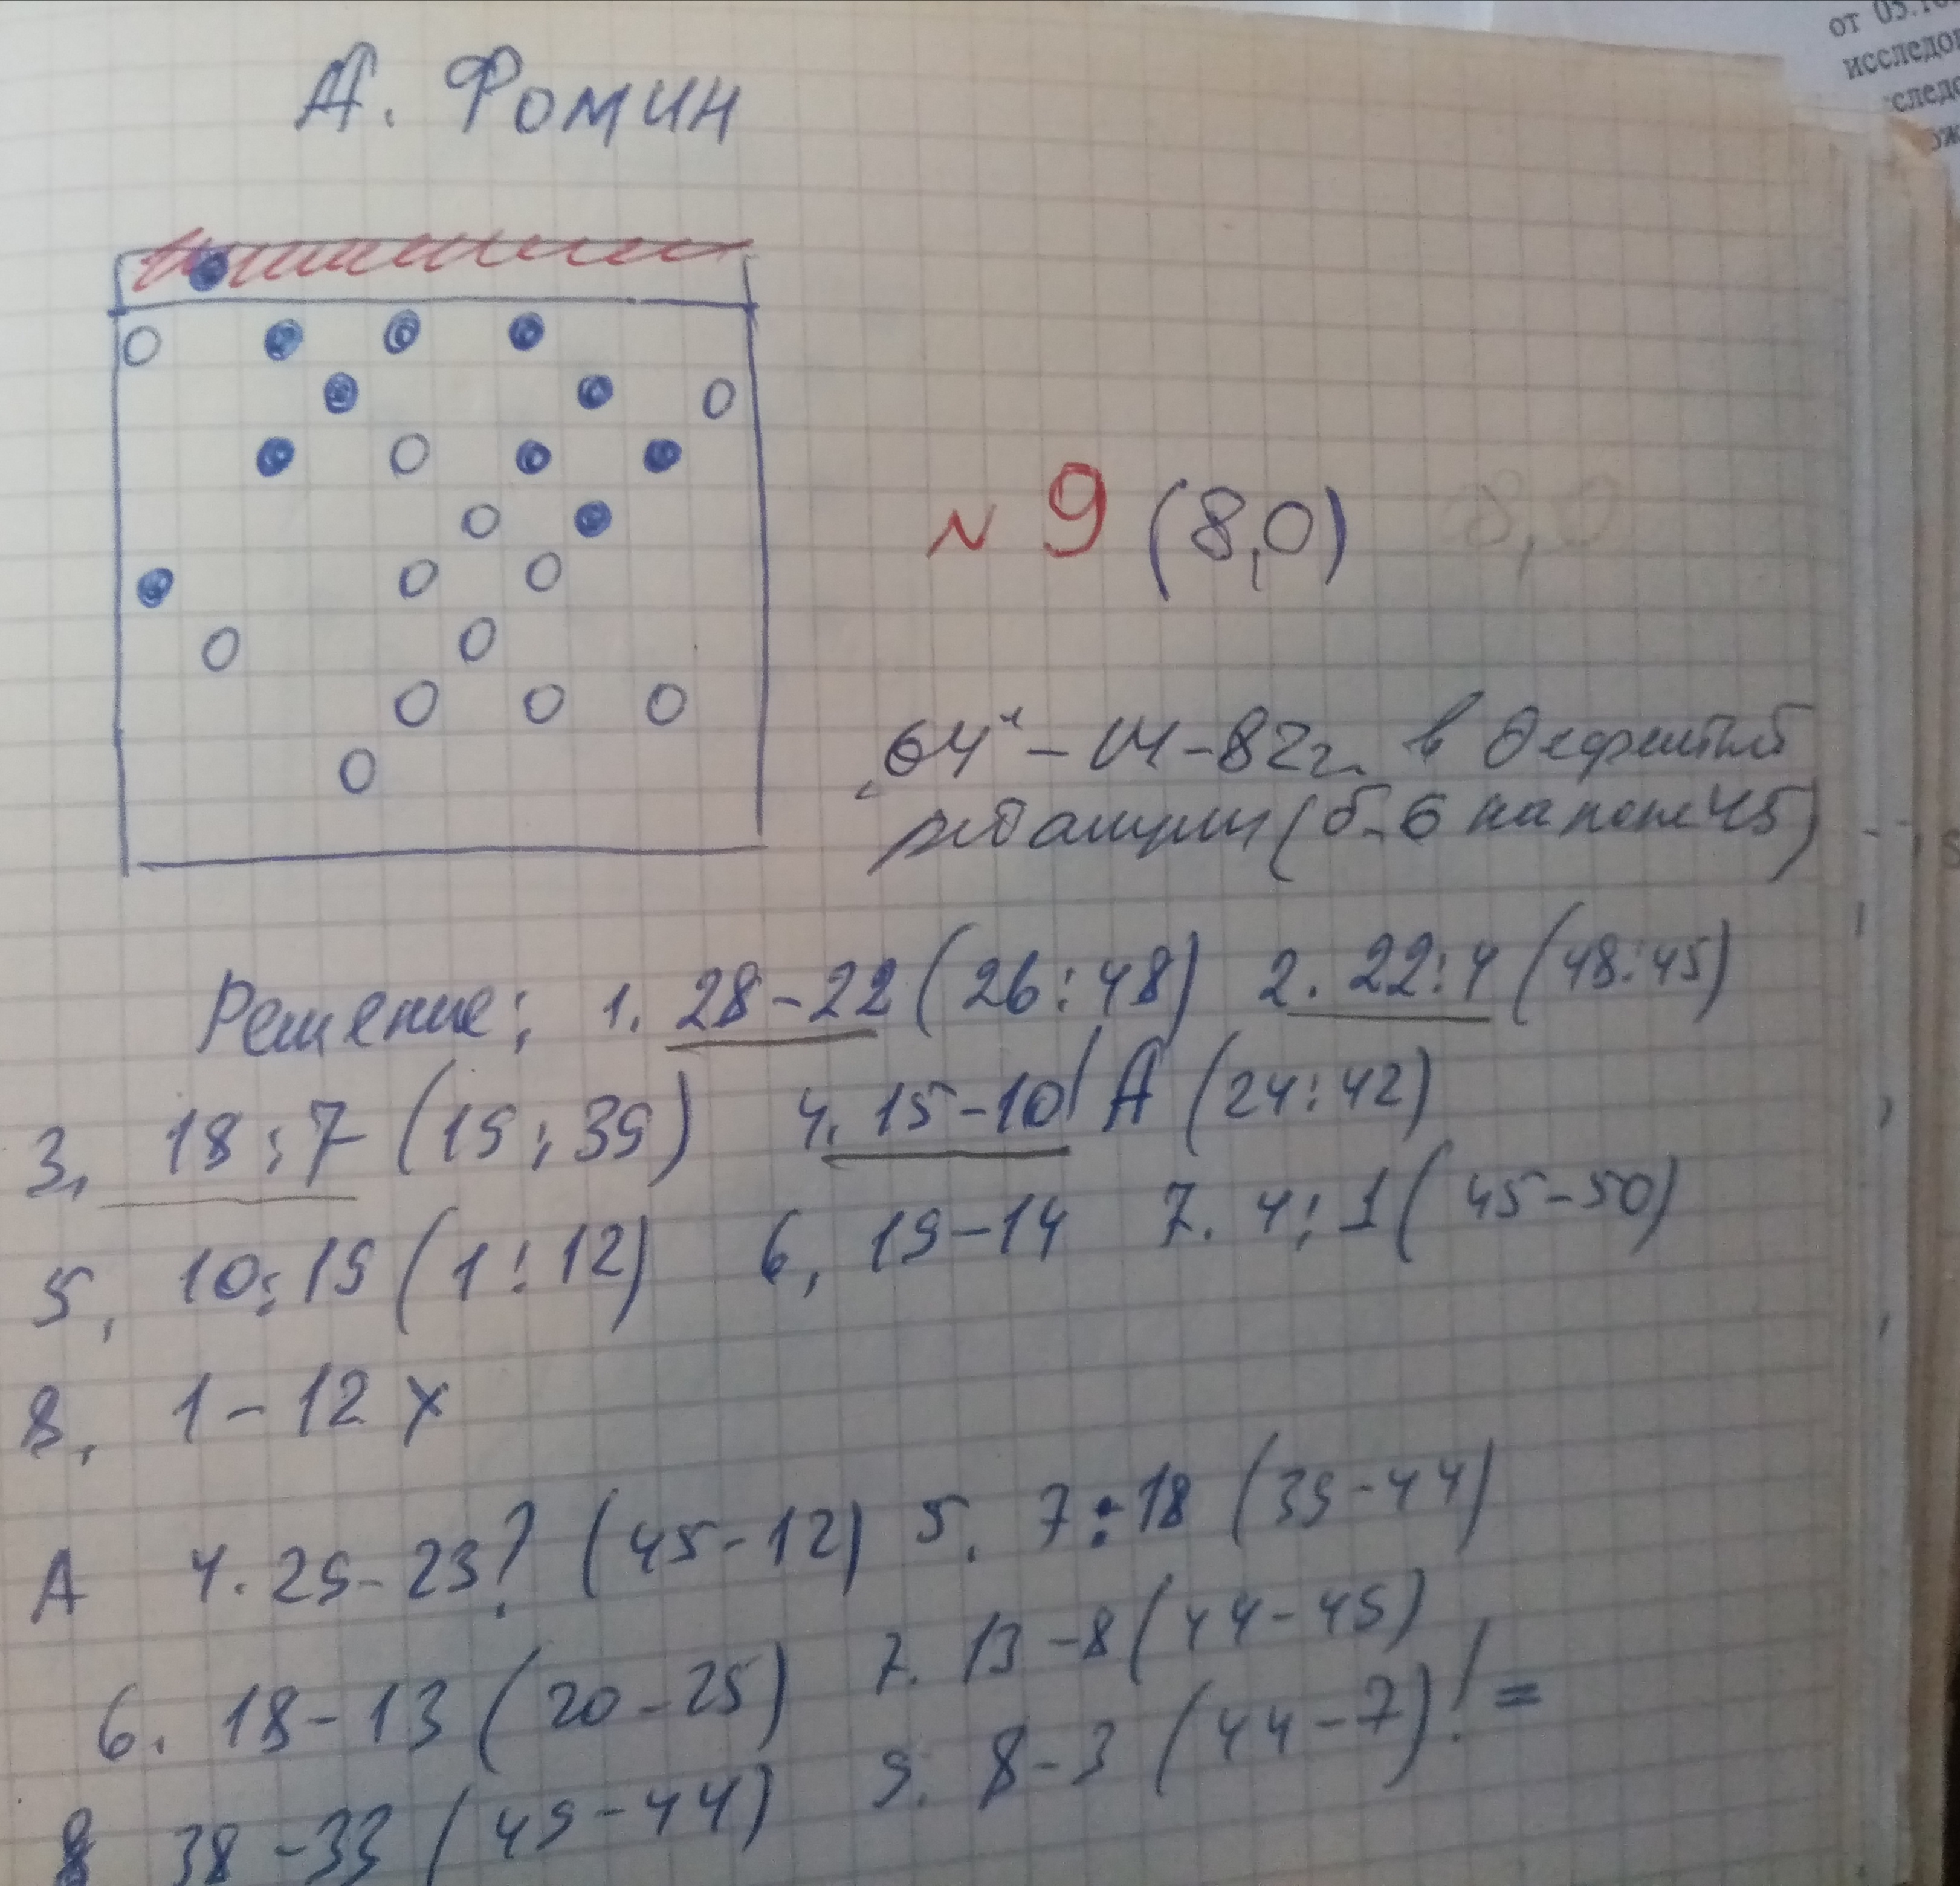 от 05.10
исследо
следо
А. Фомин
N 9 (8,0)
8,0
64" – 14 – 82г. в
(б. 6 на поле 45)
Решение: 1. 28–22 (26:48) 2. 22:4 (48:45)
3. 18:7 (19:39) 4. 15–10! А (24:42)
5. 10:19 (1:12) 6. 19–14 7. 4:1 (45–50)
8. 1–12 х
А 4. 29–23? (45–12) 5. 7:18 (39–44)
6. 18–13 (20–25) 7. 13–8 (44–49)
8 38–33 (49–44) 9. 8–3 (44–7)! =